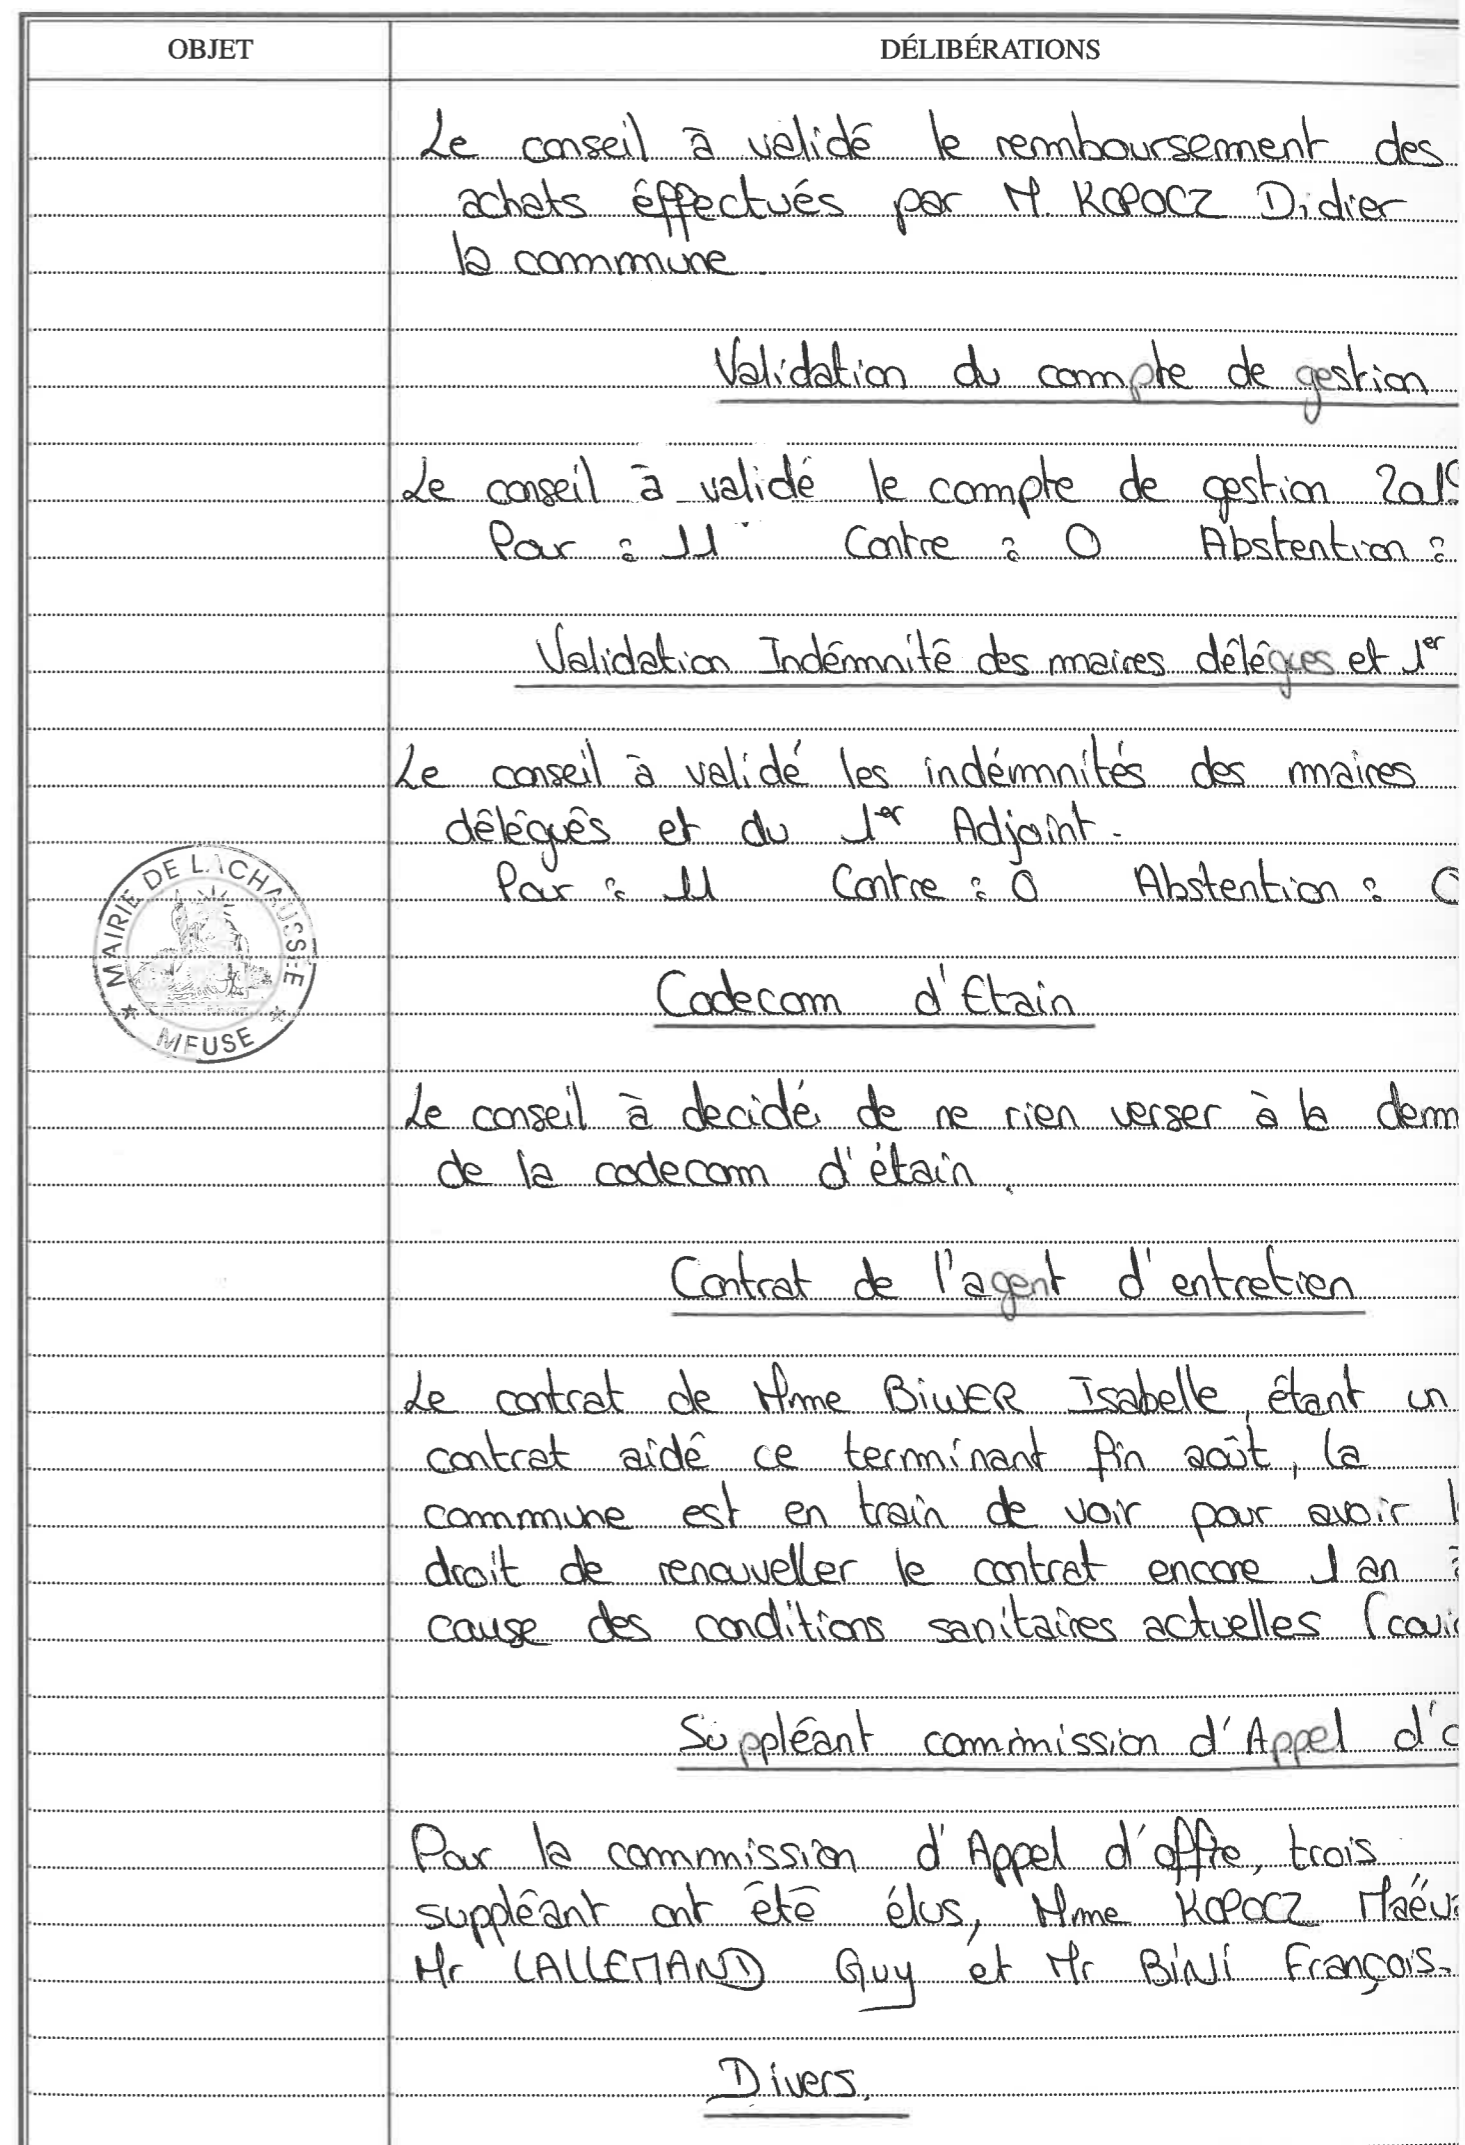 OBJET
DÉLIBÉRATIONS
Le conseil à validé le remboursement des
achats éffectués par M. KOPOCZ Didier
la commune.
Validation du compte de gestion
Le conseil à validé le compte de gestion 2019
Pour : 11 Contre : 0 Abstention :
Validation Indémnité des maires délégues et 1er
Le conseil à validé les indémnités des maires
délégués et du 1er Adjoint.
Pour : 11 Contre : 0 Abstention : 0
MAIRIE DE LACHAUSSEE
MEUSE
Codecom d'Etain
Le conseil à decidé de ne rien verser à la dem
de la codecom d'étain.
Contrat de l'agent d'entretien
Le contrat de Mme BIWER Isabelle, étant un
contrat aidé ce terminant fin août, la
commune est en train de voir pour avoir l
droit de renouveller le contrat encore 1 an à
cause des conditions sanitaires actuelles (covi
Suppléant commission d'Appel d'o
Pour la commission d'Appel d'offre, trois
suppléant ont été élus, Mme KOPOCZ Maéva
Mr LALLEMAND Guy et Mr BINI François.
Divers.